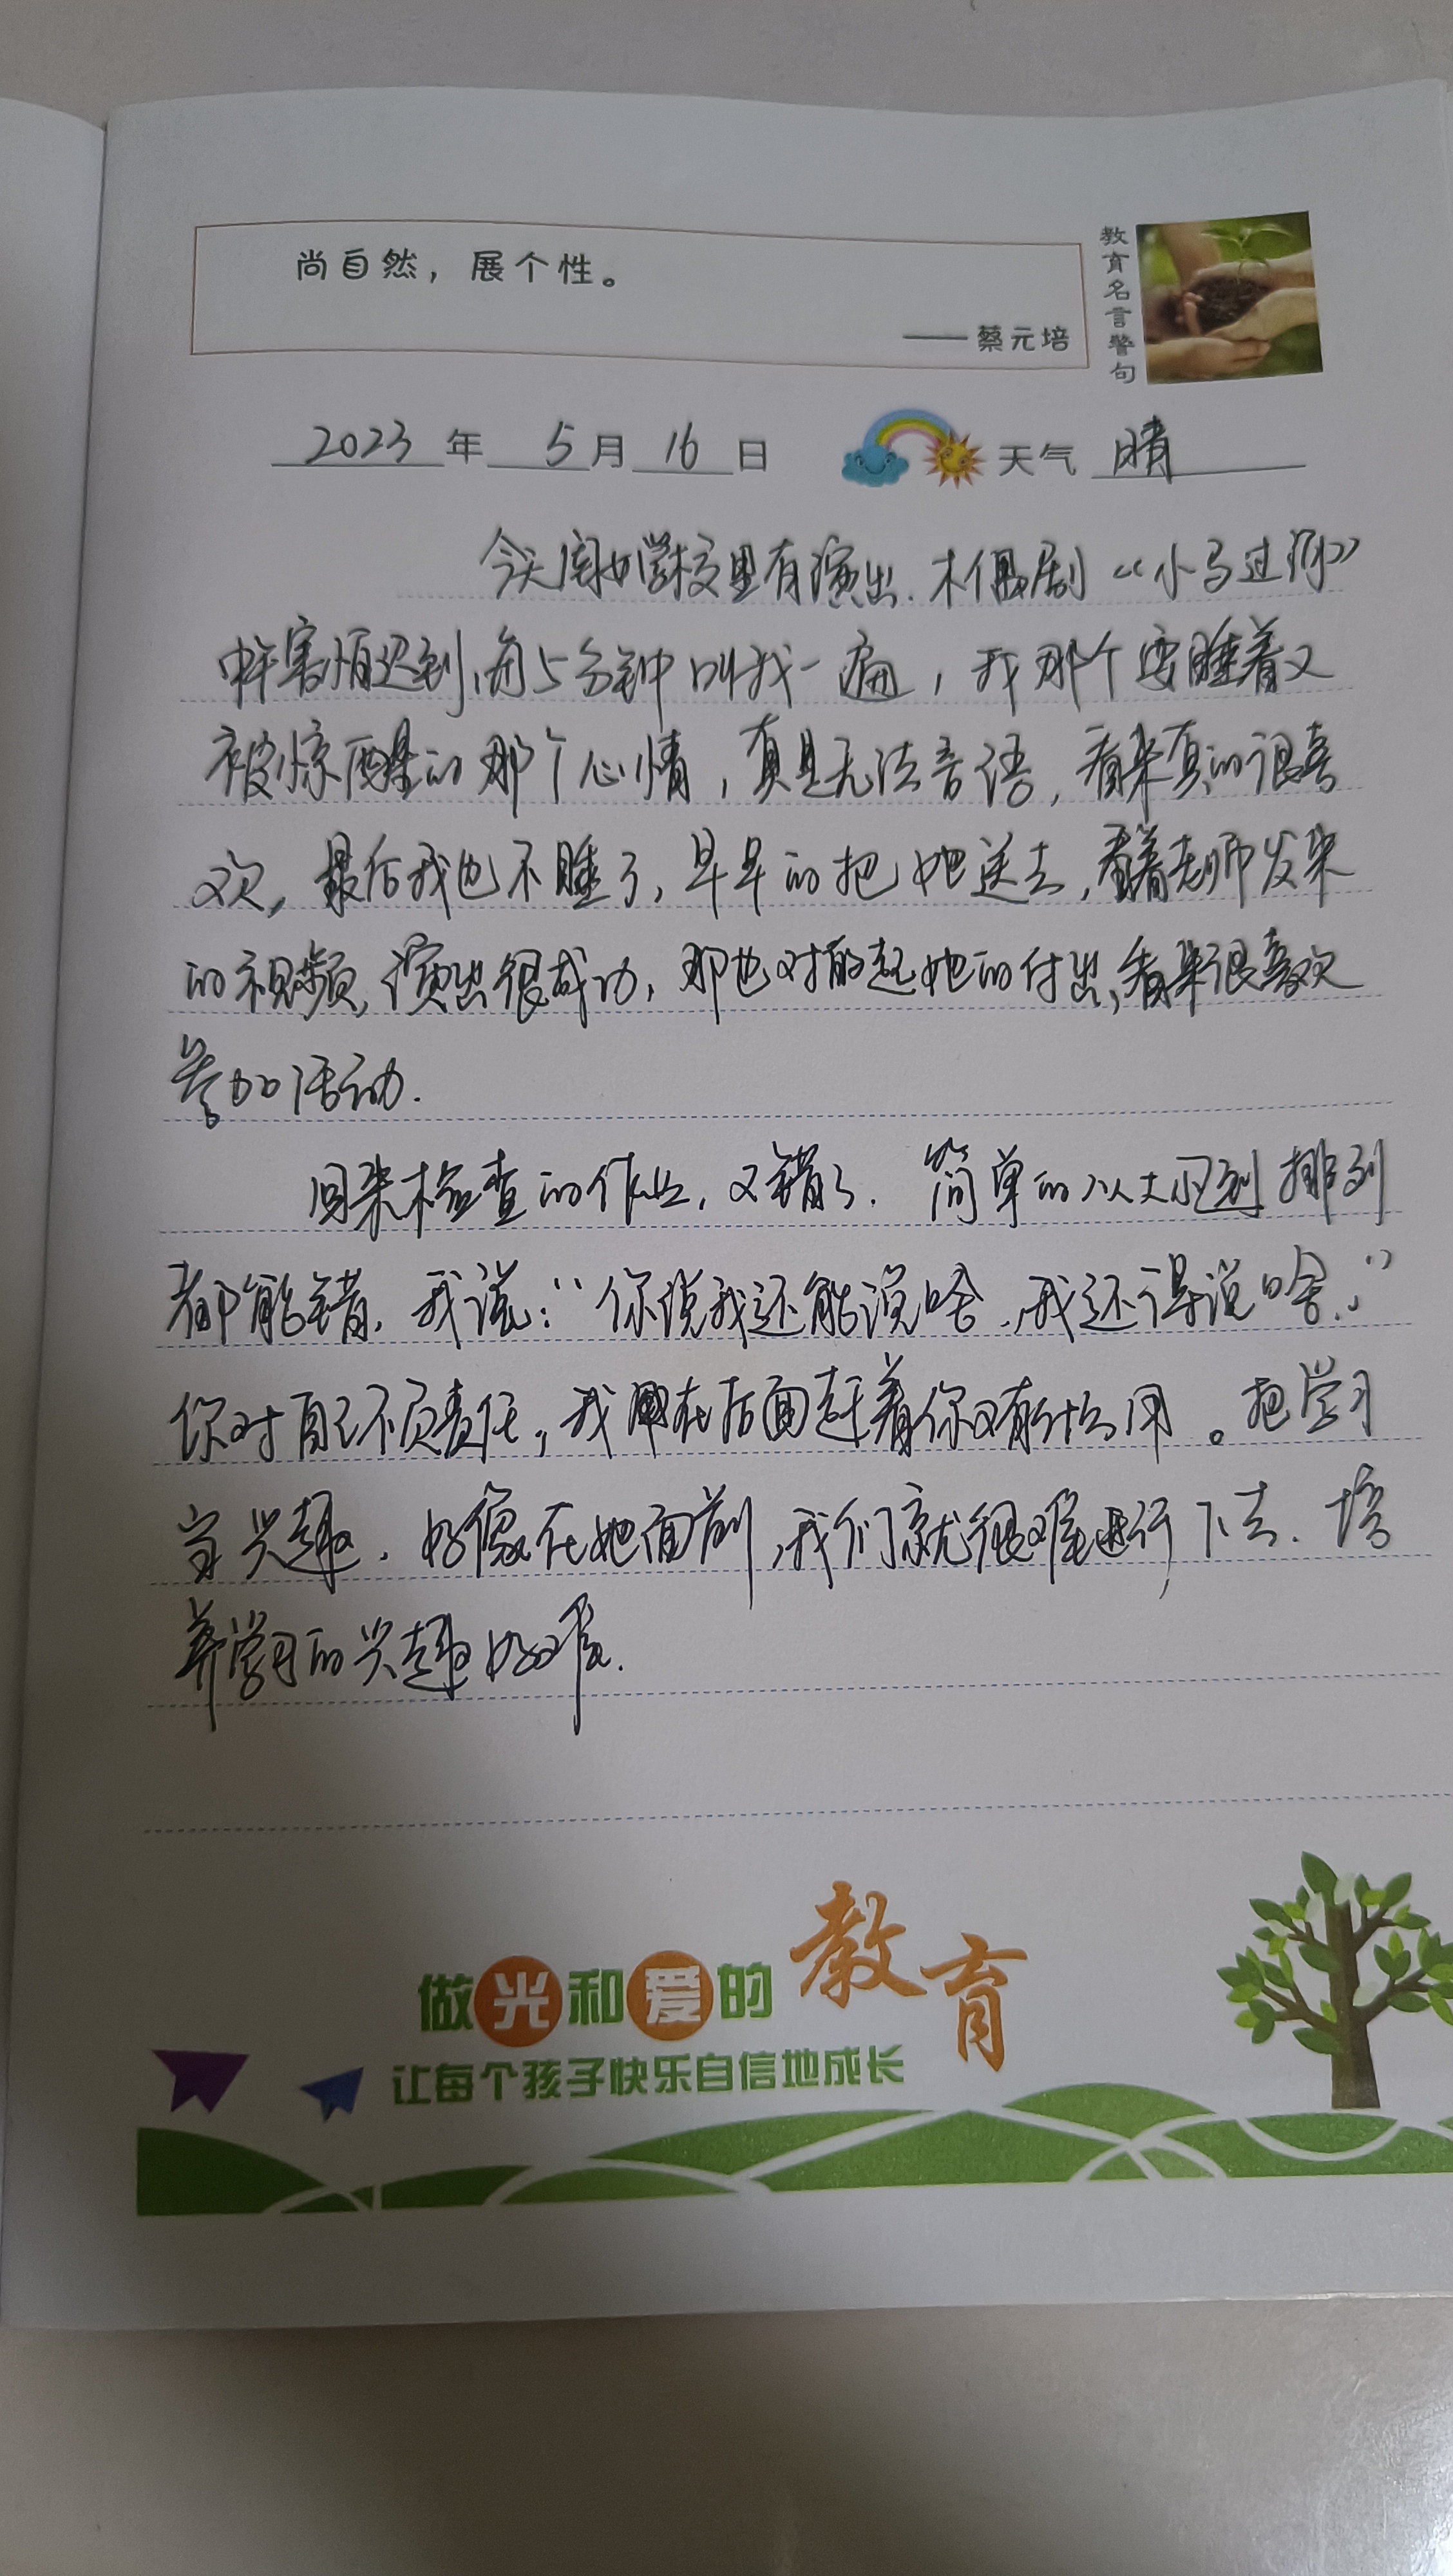 尚自然，展个性。
——蔡元培
教育名言警句
2023年 5月16日 天气 晴
今天因如学校里有演出.木偶剧《小马过河》
害怕迟到,每5分钟叫我一遍，我那个要睡着又
被惊醒的那个心情，真是无法言语，看来真的很喜
欢，最后我也不睡了,早早的把她送去,看着老师发来
的视频,演出很成功，那也对的起她的付出,看来很喜欢
参加活动.
回来检查的作业，又错了.简单的从大到排列
都能错，我说：“你说我还能说啥，我还得说啥.”
你对自己不负责任，我在后面赶着你又有什么用。把学习
当兴趣，好像在她面前,我们就很难进行下去.培
养学习的兴趣好难.
做光和爱的教育
让每个孩子快乐自信地成长